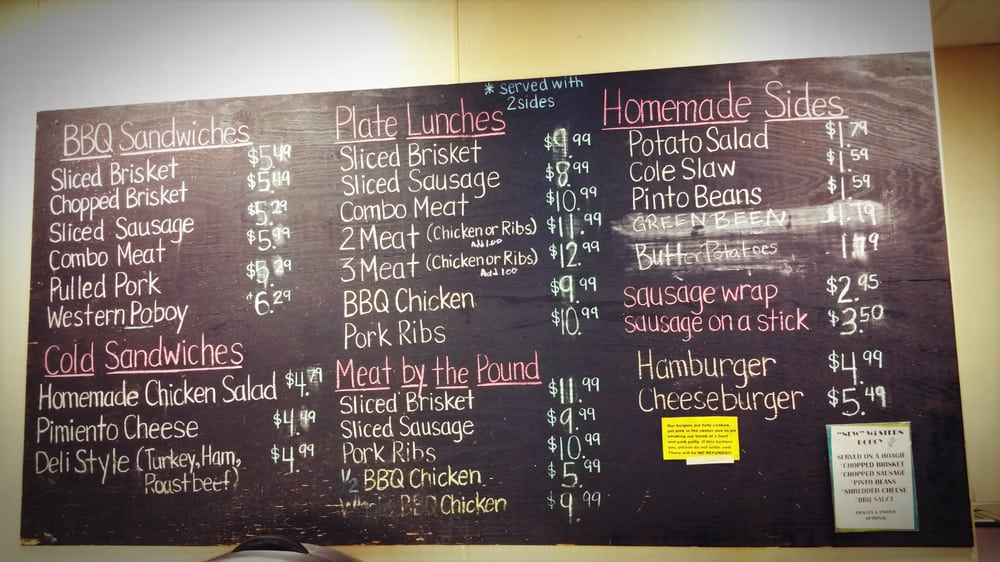 BBQ Sandwiches
Sliced Brisket $5.49
Chopped Brisket $5.49
Sliced Sausage $5.29
Combo Meat $5.99
Pulled Pork $5.29
Western Poboy $6.29
Cold Sandwiches
Homemade Chicken Salad $4.79
Pimiento Cheese $4.49
Deli Style (Turkey, Ham, $4.99
Roastbeef)
* served with
2 sides
Plate Lunches
Sliced Brisket $9.99
Sliced Sausage $8.99
Combo Meat $10.99
2 Meat (Chicken or Ribs) $11.99
Add 1.00
3 Meat (Chicken or Ribs) $12.99
Add 1.00
BBQ Chicken $9.99
Pork Ribs $10.99
Meat by the Pound
Sliced Brisket $11.99
Sliced Sausage $9.99
Pork Ribs $10.99
1/2 BBQ Chicken $5.99
Chicken $9.99
Homemade Sides
Potato Salad $1.79
Cole Slaw $1.59
Pinto Beans $1.59
GREEN BEEN $1.79
Butter Potatoes 1.79
sausage wrap $2.95
sausage on a stick $3.50
Hamburger $4.99
Cheeseburger $5.49
Our burgers are fully cooked,
yet pink in the center due to
smoking our blend of beef
and pork patty. If this bothers
you, please do not order one!
There will be NO REFUNDS!!
"NEW" WESTERN
POBOY
SERVED ON A HOAGIE
*CHOPPED BRISKET
*CHOPPED SAUSAGE
*PINTO BEANS
*SHREDDED CHEESE
*BBQ SAUCE
PICKLES & ONIONS
OPTIONAL